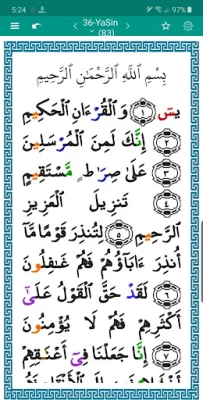 5:24
97%
36-YaSin
(83)
بِسْمِ اللَّهِ الرَّحْمَٰنِ الرَّحِيمِ
يسٓ ١ وَالْقُرْءَانِ الْحَكِيمِ
٢ إِنَّكَ لَمِنَ الْمُرْسَلِينَ
٣ عَلَىٰ صِرَٰطٍ مُّسْتَقِيمٍ
٤ تَنزِيلَ الْعَزِيزِ
الرَّحِيمِ ٥ لِتُنذِرَ قَوْمًا مَّا
أُنذِرَ ءَابَآؤُهُمْ فَهُمْ غَٰفِلُونَ
٦ لَقَدْ حَقَّ الْقَوْلُ عَلَىٰٓ
أَكْثَرِهِمْ فَهُمْ لَا يُؤْمِنُونَ
٧ إِنَّا جَعَلْنَا فِىٓ أَعْنَٰقِهِمْ